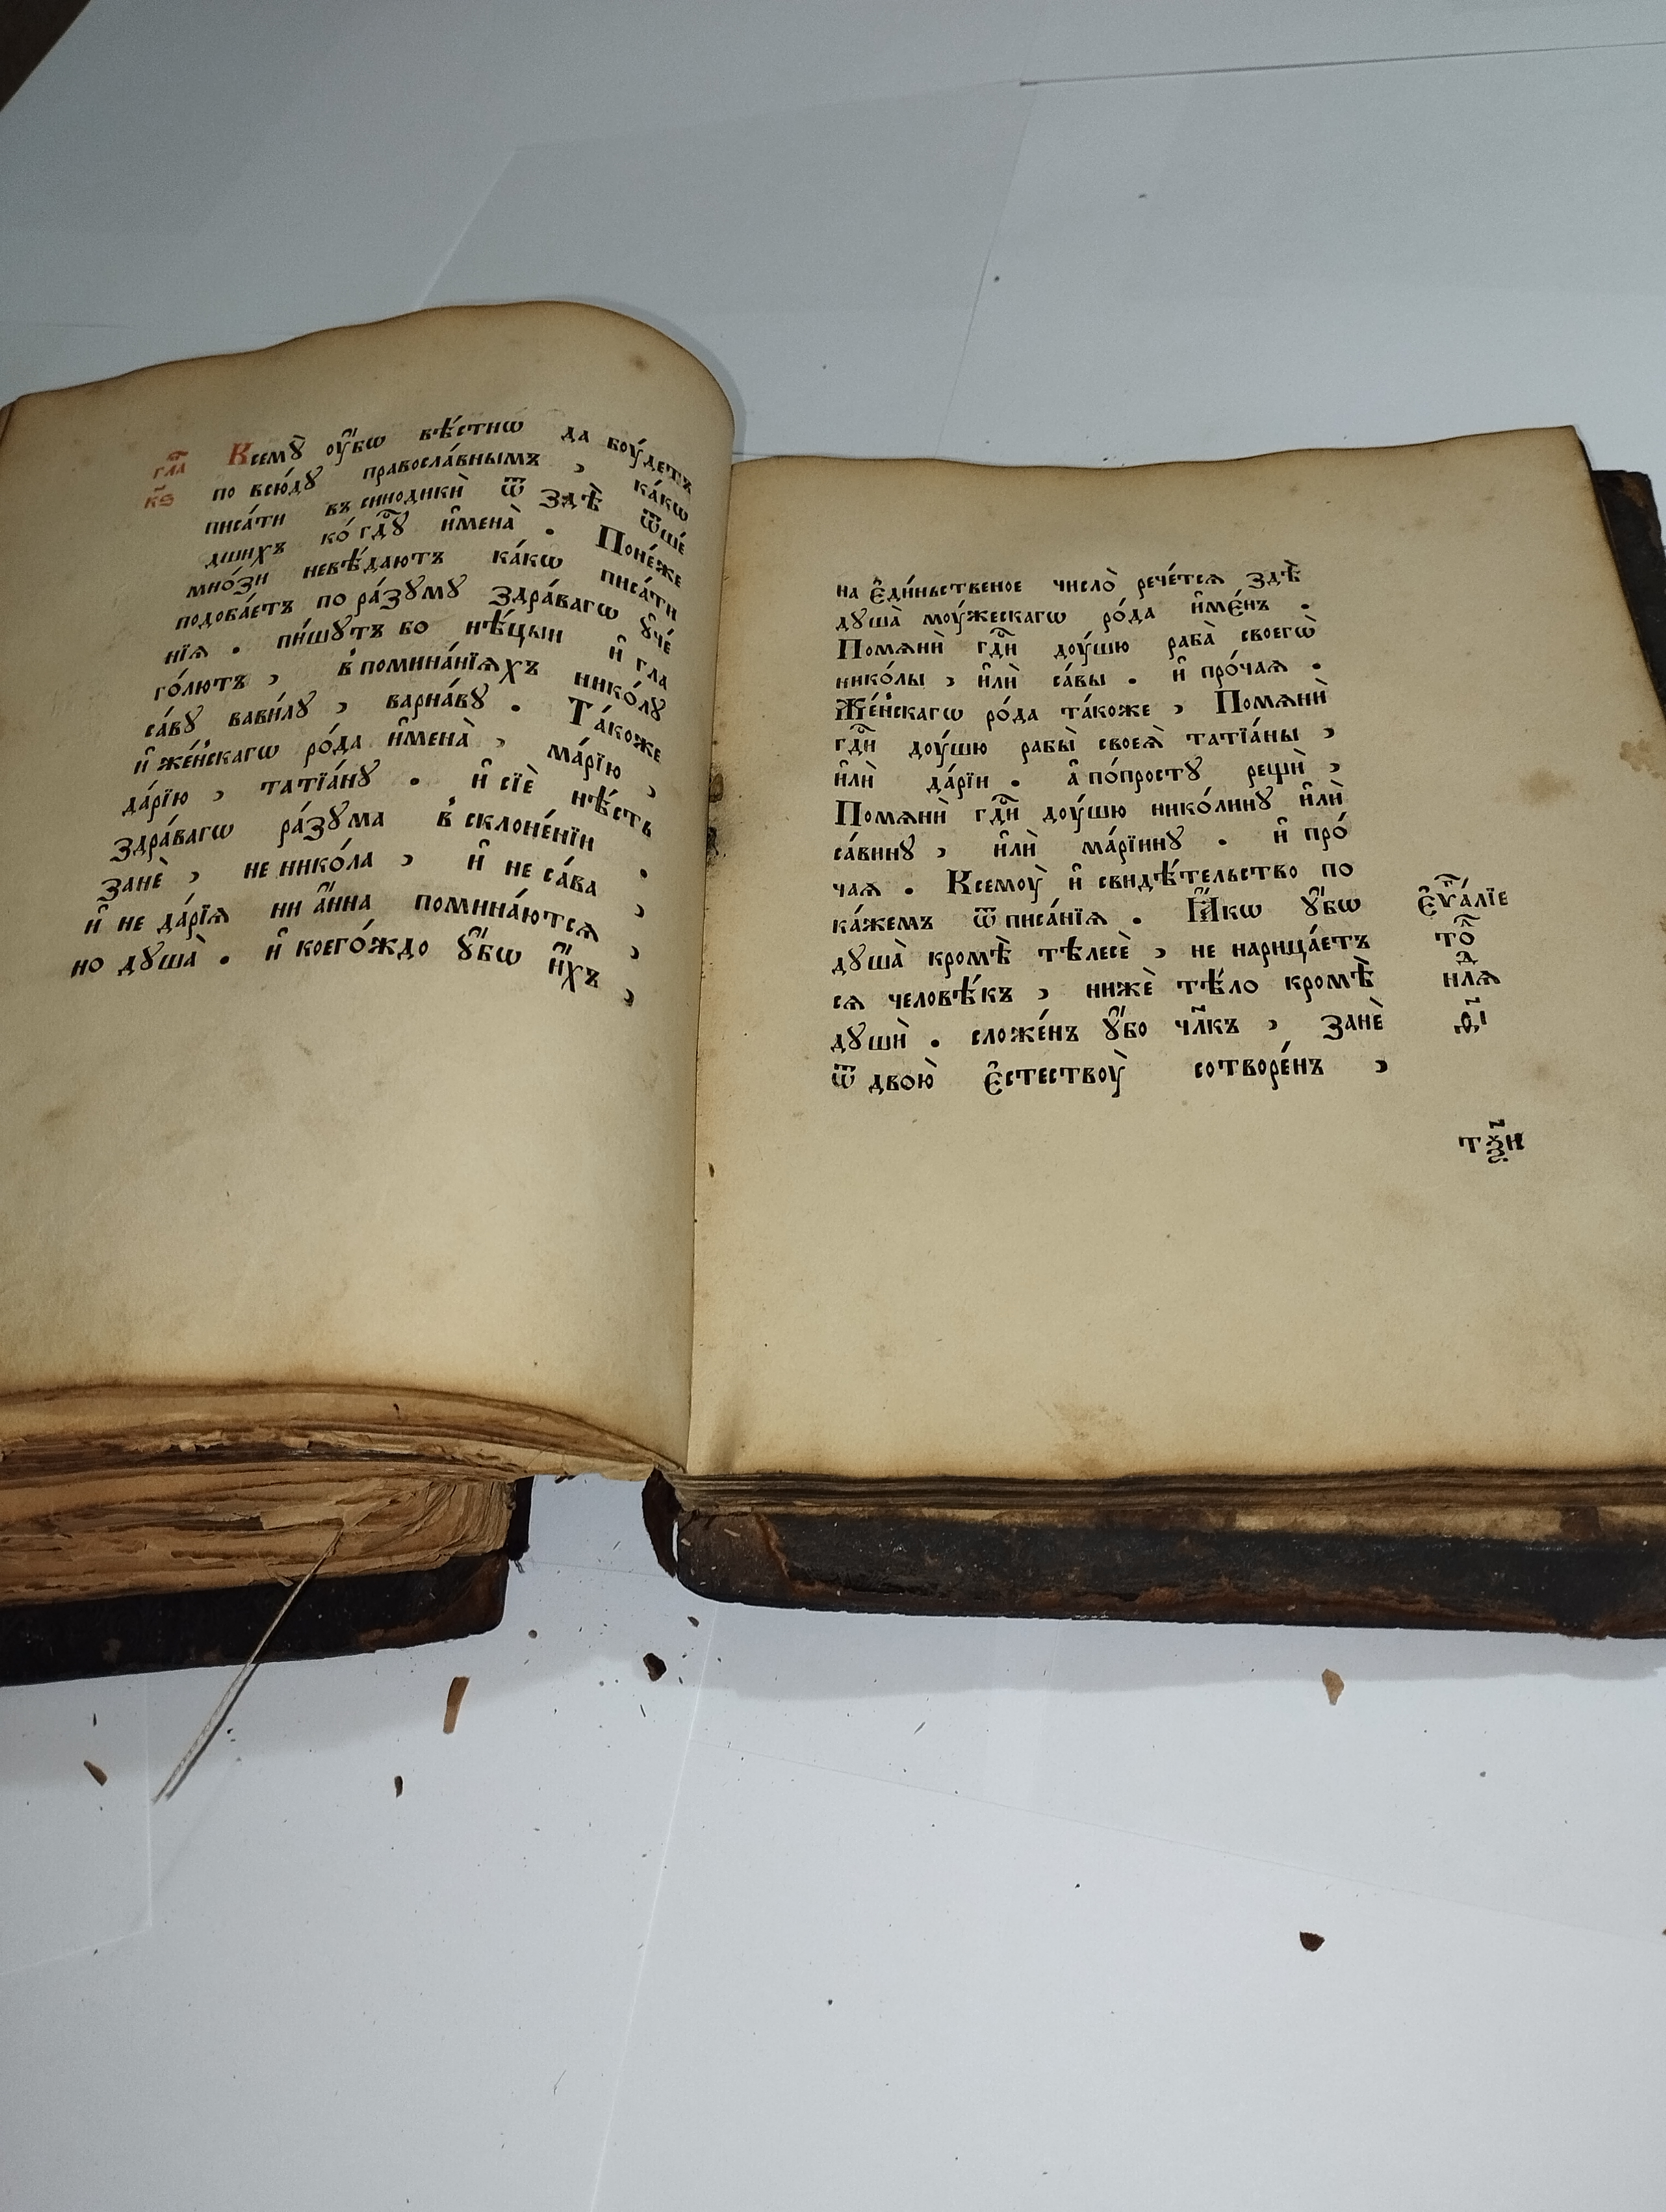 гл҃а
к҃ѕ
Всемꙋ̀ ᲂу҆́бѡ вѣ́стнѡ да боу́детъ
по всю́дꙋ правосла́внымъ , ка́кѡ
писа́ти въ синодикѝ ѿ здѣ̀ ѿше́
дшихъ ко́ гдⷭ҇ꙋ и҆мена̀ . Поне́же
мно́зи невѣ́даютъ ка́кѡ писа́ти
подоба́етъ по ра́зꙋмꙋ здра́вагѡ ꙋ҆че́
нїѧ . пи́шꙋтъ бо нѣ́цыи и҆ гла
го́лютъ , в̾ помина́нїѧхъ нико́лꙋ
са́вꙋ вави́лꙋ , варна́вꙋ . Та́коже
и҆ же́н̾скагѡ ро́да и҆мена̀ , ма́рїю ,
да́рїю , татїа́нꙋ . и҆ сїѐ нѣ́сть
здра́вагѡ ра́зꙋма в̾ склоне́нїи .
занѐ , не нико́ла , и҆ не са́ва ,
и҆ не да́рїѧ ни а҆́нна помина́ютсѧ ,
но дꙋша̀ . и҆ коего́ждо ꙋ҆́бѡ и҆́хъ ,
на є҆ди́ньственое число̀ рече́тсѧ здѣ̀
дꙋша̀ моу́жескагѡ ро́да и҆ме́нъ .
Помѧнѝ гдⷭ҇и доу́шю раба̀ своегѡ̀
нико́лы , и҆лѝ са́вы . и҆ про́чаѧ .
Же́н̾скагѡ ро́да та́коже , Помѧнѝ
гдⷭ҇и доу́шю рабы̀ своеѧ̀ татїа́ны ,
и҆лѝ да́рїи . а҆ по́простꙋ рещѝ ,
Помѧнѝ гдⷭ҇и доу́шю нико́линꙋ и҆лѝ
са́винꙋ , и҆лѝ ма́рїинꙋ . и҆ про́
чаѧ . Всемоу̀ и҆ свидѣ́тельство по
ка́жемъ ѿ писа́нїѧ . Ꙗ҆́кѡ ꙋ҆́бѡ
дꙋша̀ кромѣ̀ тѣлесѐ , не нарица́етъ
сѧ человѣ́къ , нижѐ тѣ́ло кромѣ̀
дꙋшѝ . сложе́нъ ꙋ҆́бо чл҃къ , занѐ
ѿ двою̀ є҆стествоу̀ сотворе́нъ ,
є҆ѵⷢ҇а́лїе
то́л
нлѧ
о҃і
тꙋн